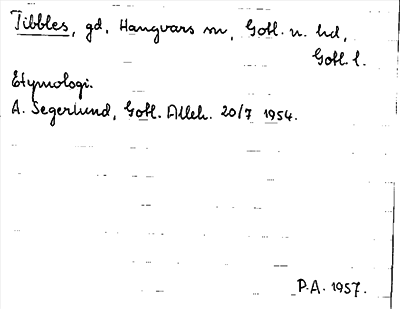 Tibbles, gd, Hangvars sn, Gotl. n. hd,
Gotl. l.
Etymologi.
A. Segerlund, Gotl. Alleh. 20/7 1954.
P.A. 1957.